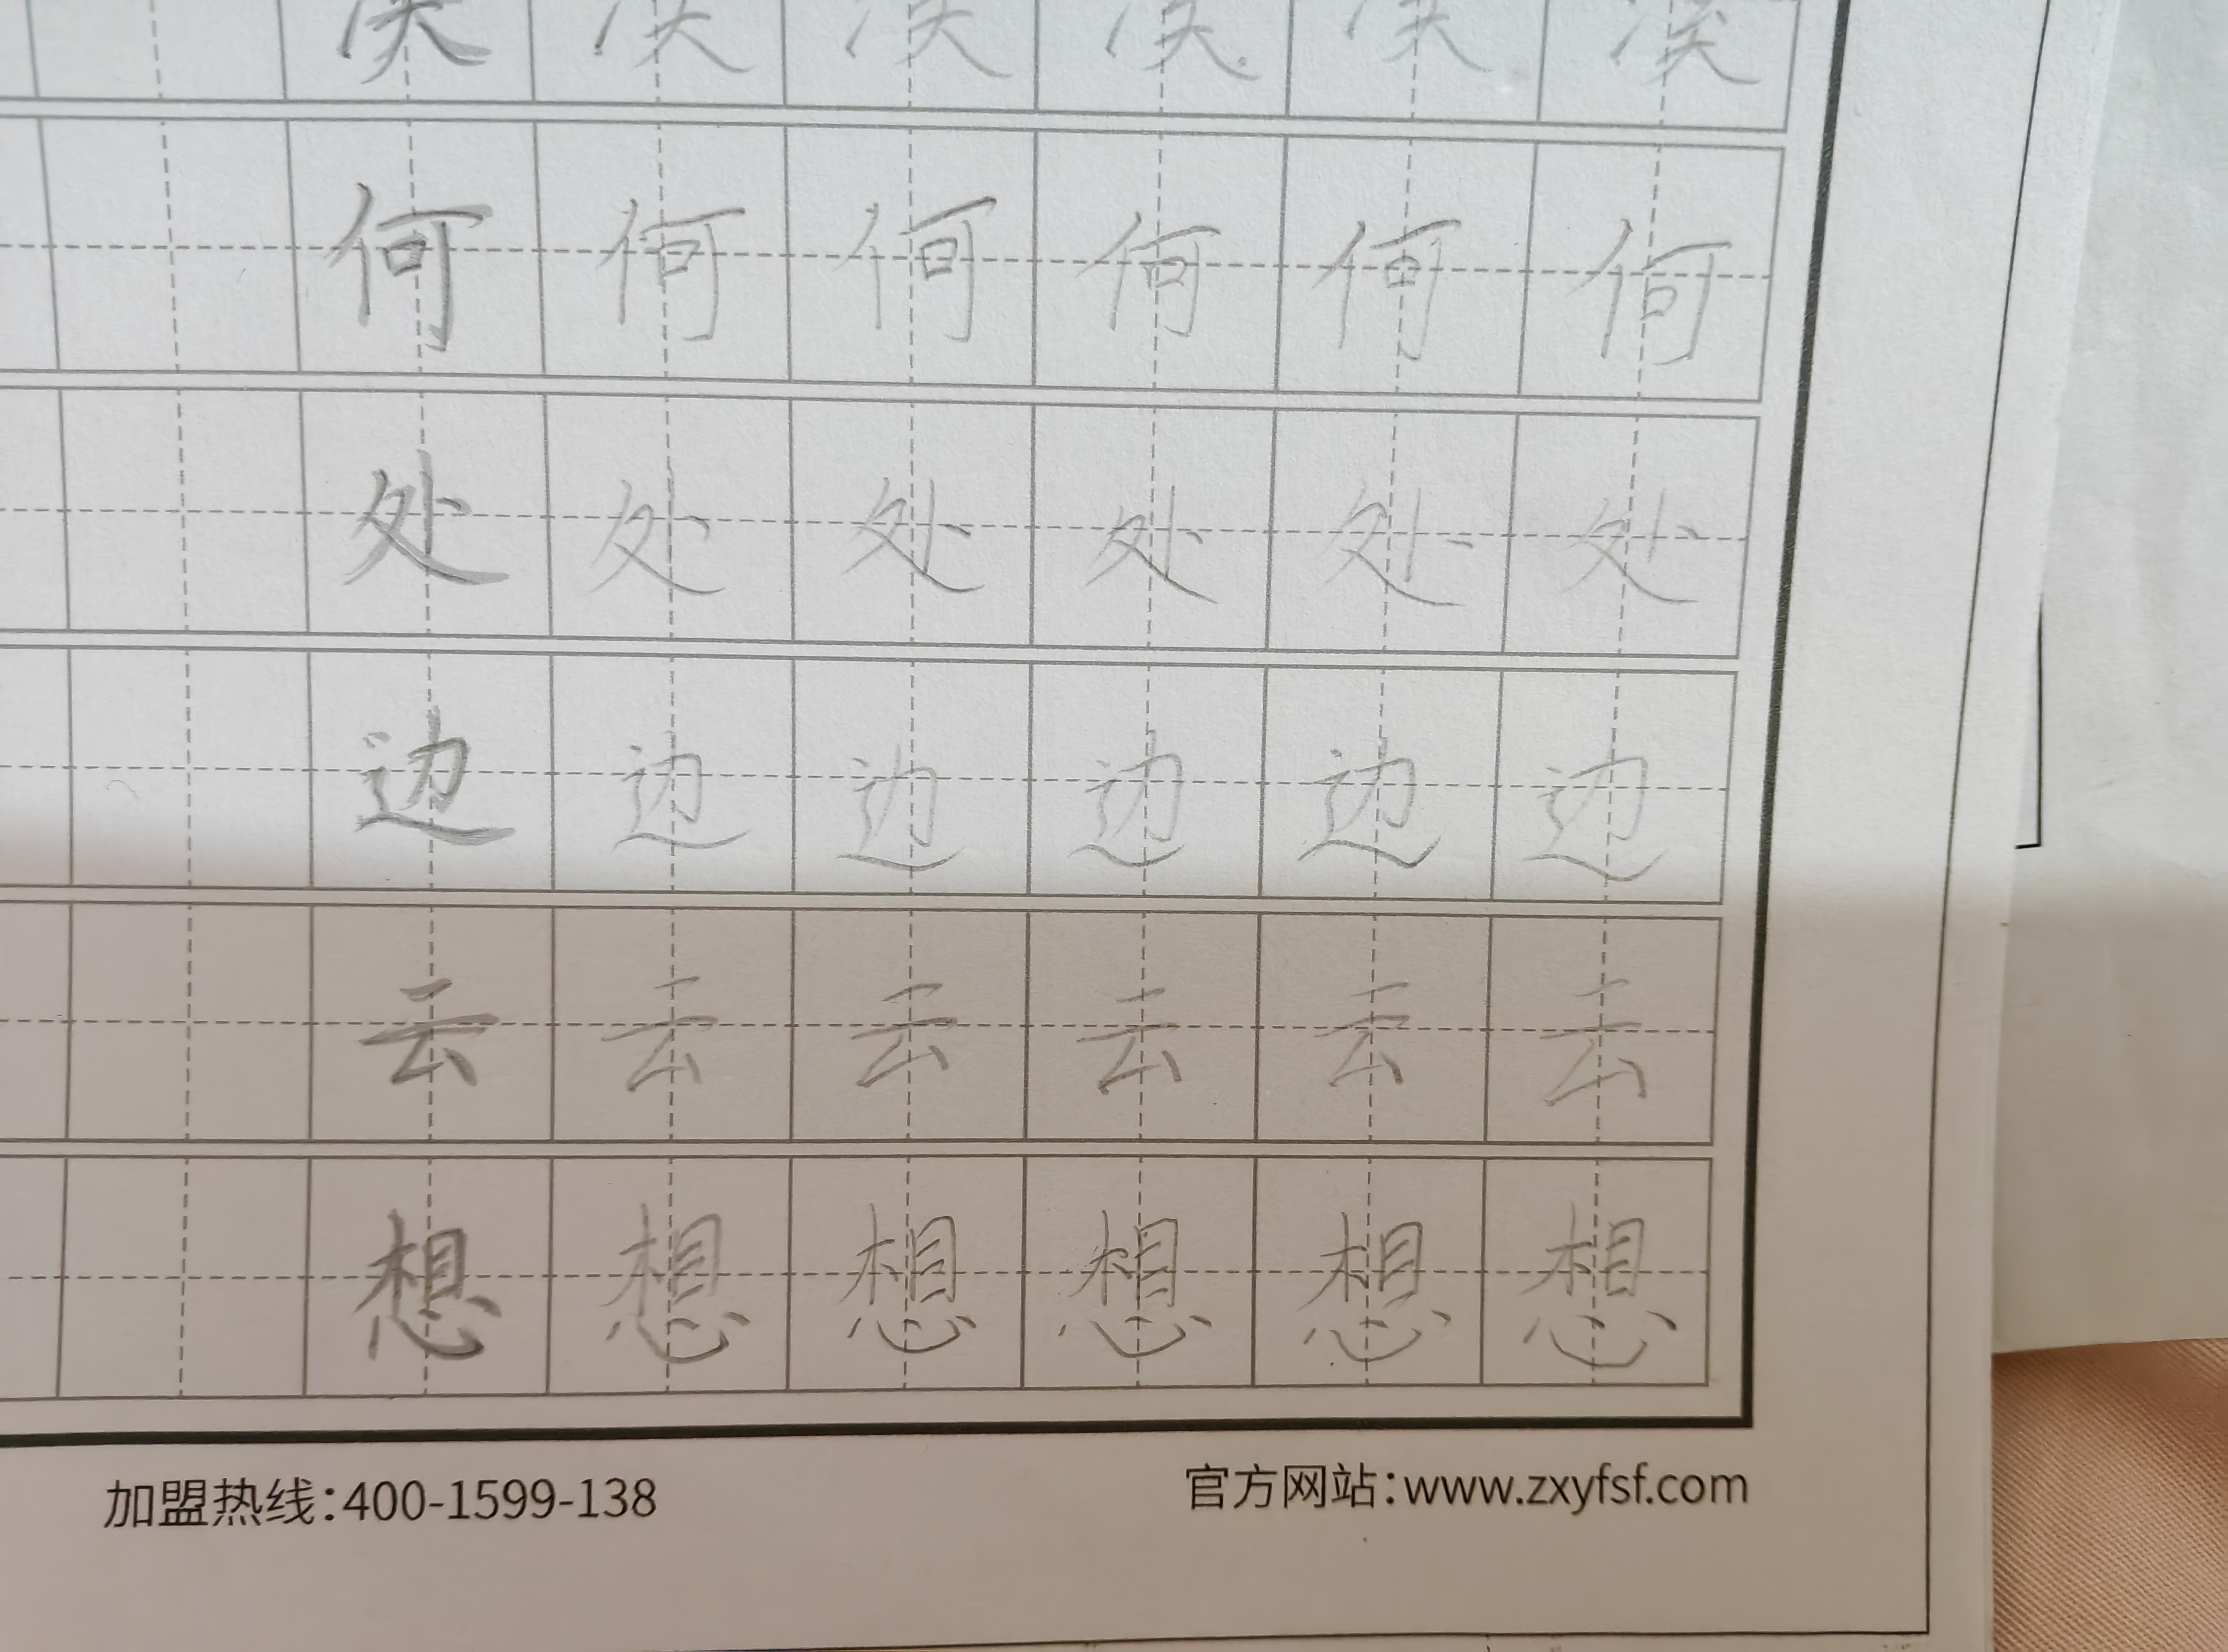 何何何何何何
处处处处处处
边边边边边边
云云云云云云
想想想想想想
加盟热线:400-1599-138 官方网站:www.zxyfsf.com